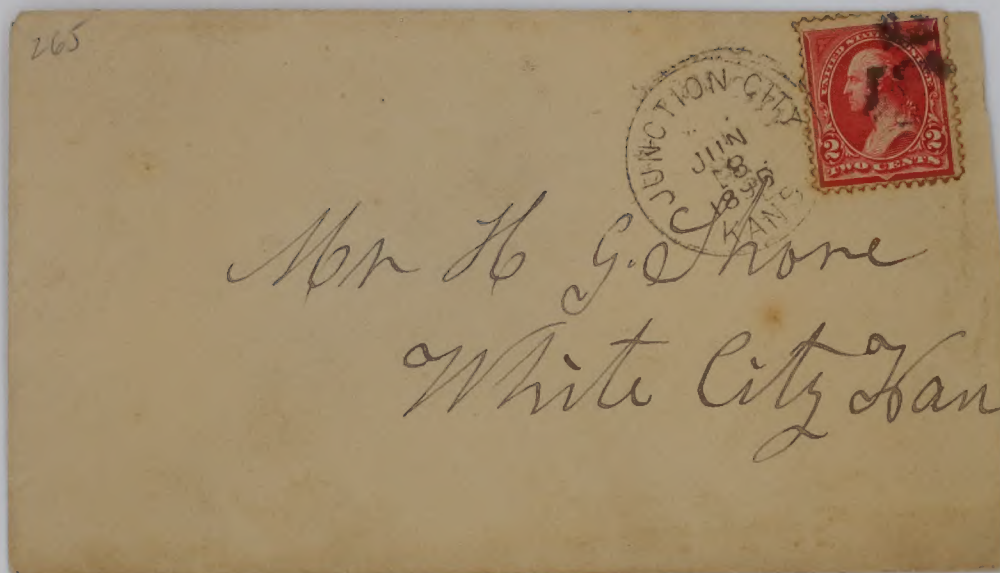 265
JUNCTION CITY
JUN
8
KANS
UNITED STATES POSTAGE
2 2
TWO CENTS
Mr H G. Shore
White City Kan